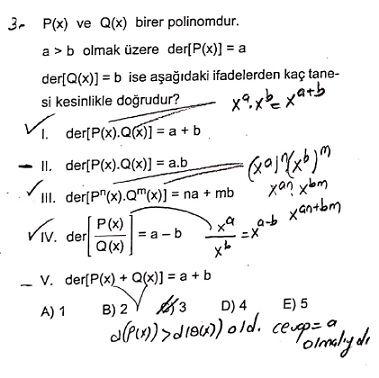 3- P(x) ve Q(x) birer polinomdur.
a > b olmak üzere der[P(x)] = a
der[Q(x)] = b ise aşağıdaki ifadelerden kaç tane-
si kesinlikle doğrudur?
xᵃ.xᵇ = xᵃ⁺ᵇ
✓ I. der[P(x).Q(x)] = a + b
– II. der[P(x).Q(x)] = a.b
(xᵃ)ⁿ(xᵇ)ᵐ
✓ III. der[Pⁿ(x).Qᵐ(x)] = na + mb
xᵃⁿ. xᵇᵐ
xᵃⁿ⁺ᵇᵐ
✓ IV. der[P(x)/Q(x)] = a – b
xᵃ/xᵇ = xᵃ⁻ᵇ
– V. der[P(x) + Q(x)] = a + b
A) 1 B) 2 C) 3 D) 4 E) 5
d(P(x)) > d(Q(x)) old. cevap = a
olmalıydı